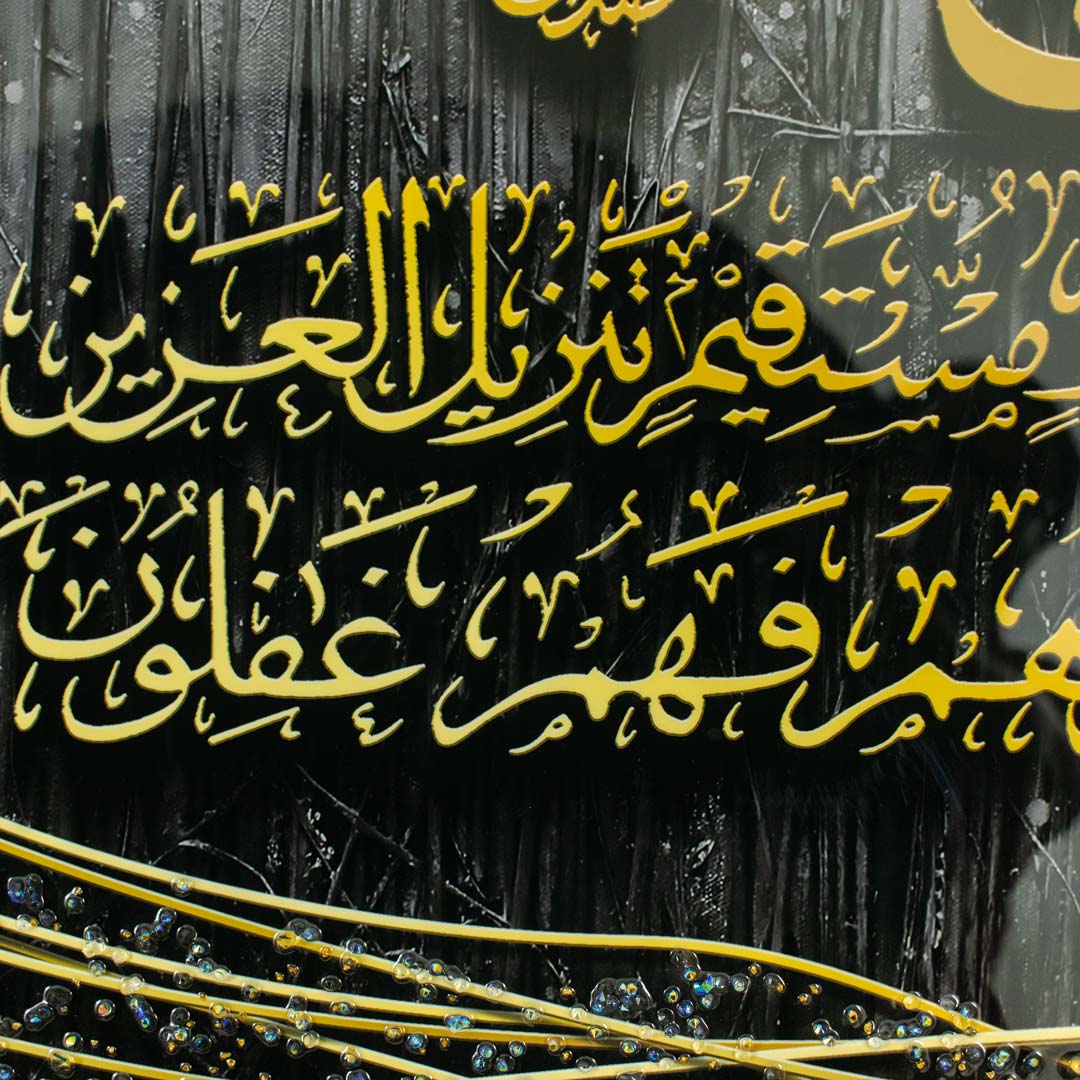 صدق
مُّسْتَقِيمٍ تَنزِيلَ الْعَزِيزِ
هُمْ فَهُمْ غَٰفِلُونَ